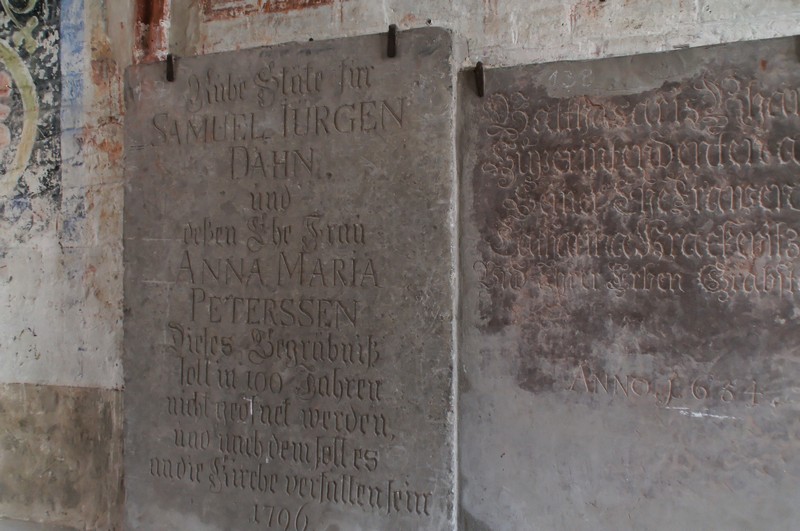 Ruhe Stäte für
SAMUEL JÜRGEN
DAHN.
und
deßen Ehe Frau
ANNA MARIA
PETERSSEN
Dieses Begräbniß
soll in 100 Jahren
nicht geöfnet werden,
und nach dem soll es
an die Kirche verfallen sein
1796
138
Balthasaris
Superintendenten
Seiner Ehe Frawen
Catharina
Vnd Erben
ANNO. 1654.